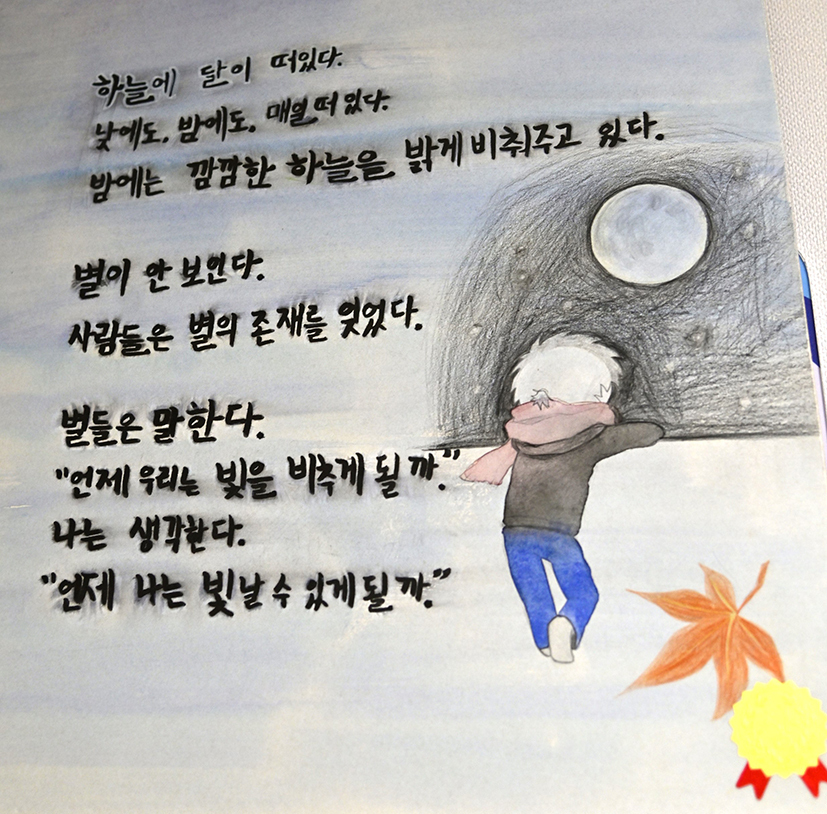 하늘에 달이 떠있다.
낮에도, 밤에도, 매일 떠 있다.
밤에는 깜깜한 하늘을 밝게 비춰주고 있다.
별이 안 보인다.
사람들은 별의 존재를 잊었다.
별들은 말한다.
"언제 우리는 빛을 비추게 될 까."
나는 생각한다.
"언제 나는 빛날 수 있게 될 까."